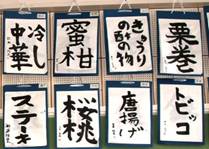 冷し
中華
蜜柑
きゅうり
の酢の物
栗巻
ステーキ
桜桃
唐揚げ
トビッコ